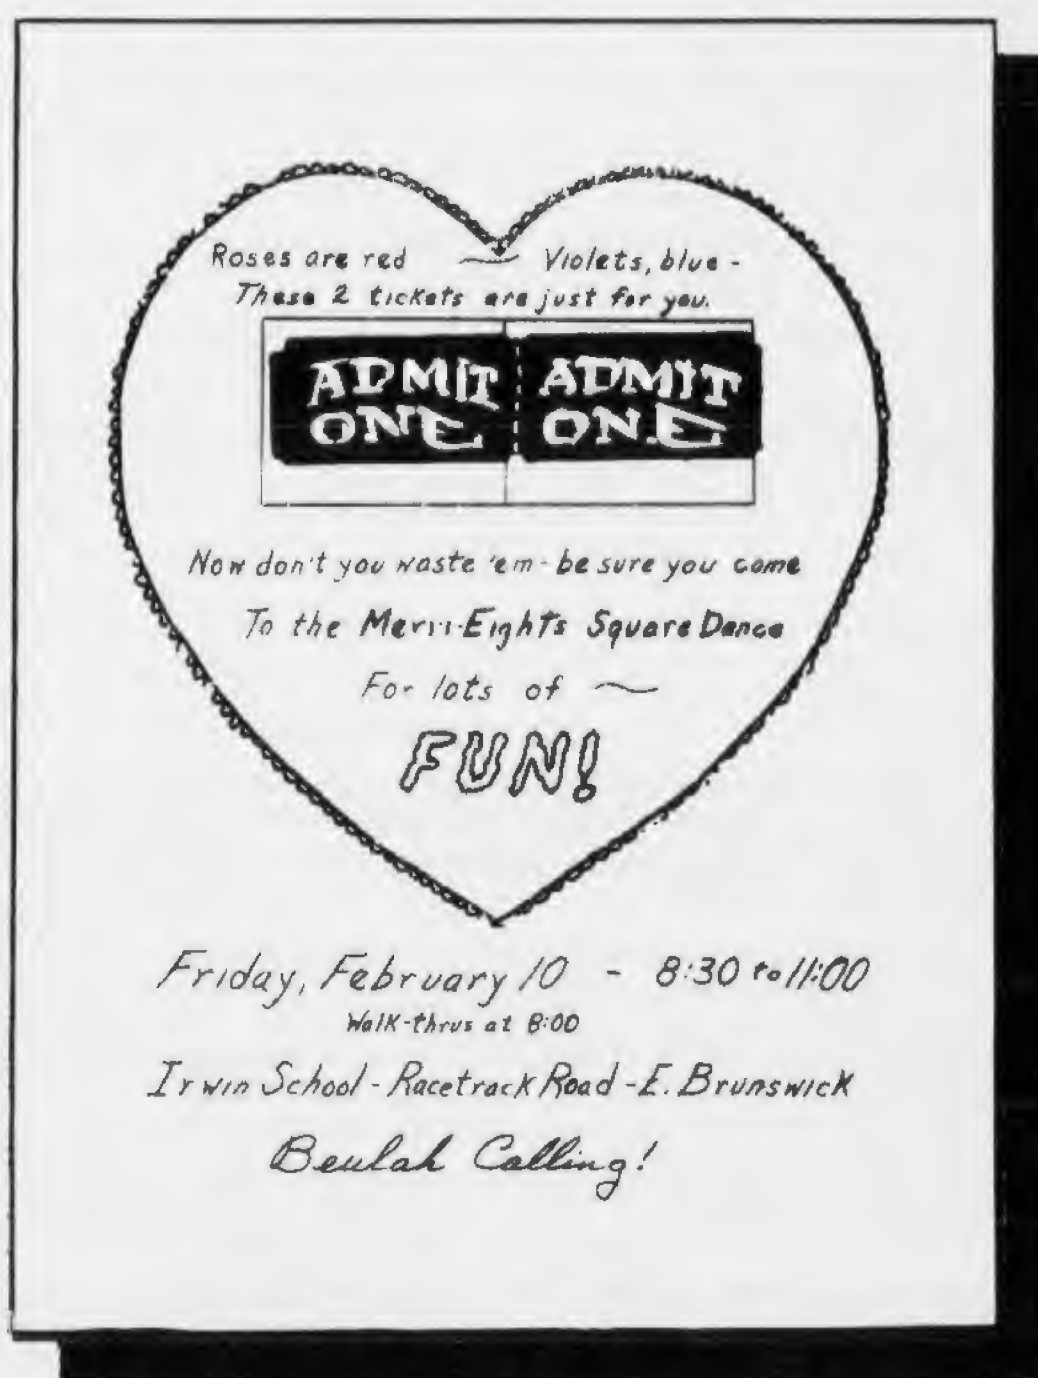 Roses are red ~ Violets, blue -
These 2 tickets are just for you.
ADMIT ONE
ADMIT ONE
Now don't you waste 'em - be sure you come
To the Merri-Eights Square Dance
For lots of ~
FUN!
Friday, February 10 - 8:30 to 11:00
Walk-thrus at 8:00
Irwin School - Racetrack Road - E. Brunswick
Beulah Calling!